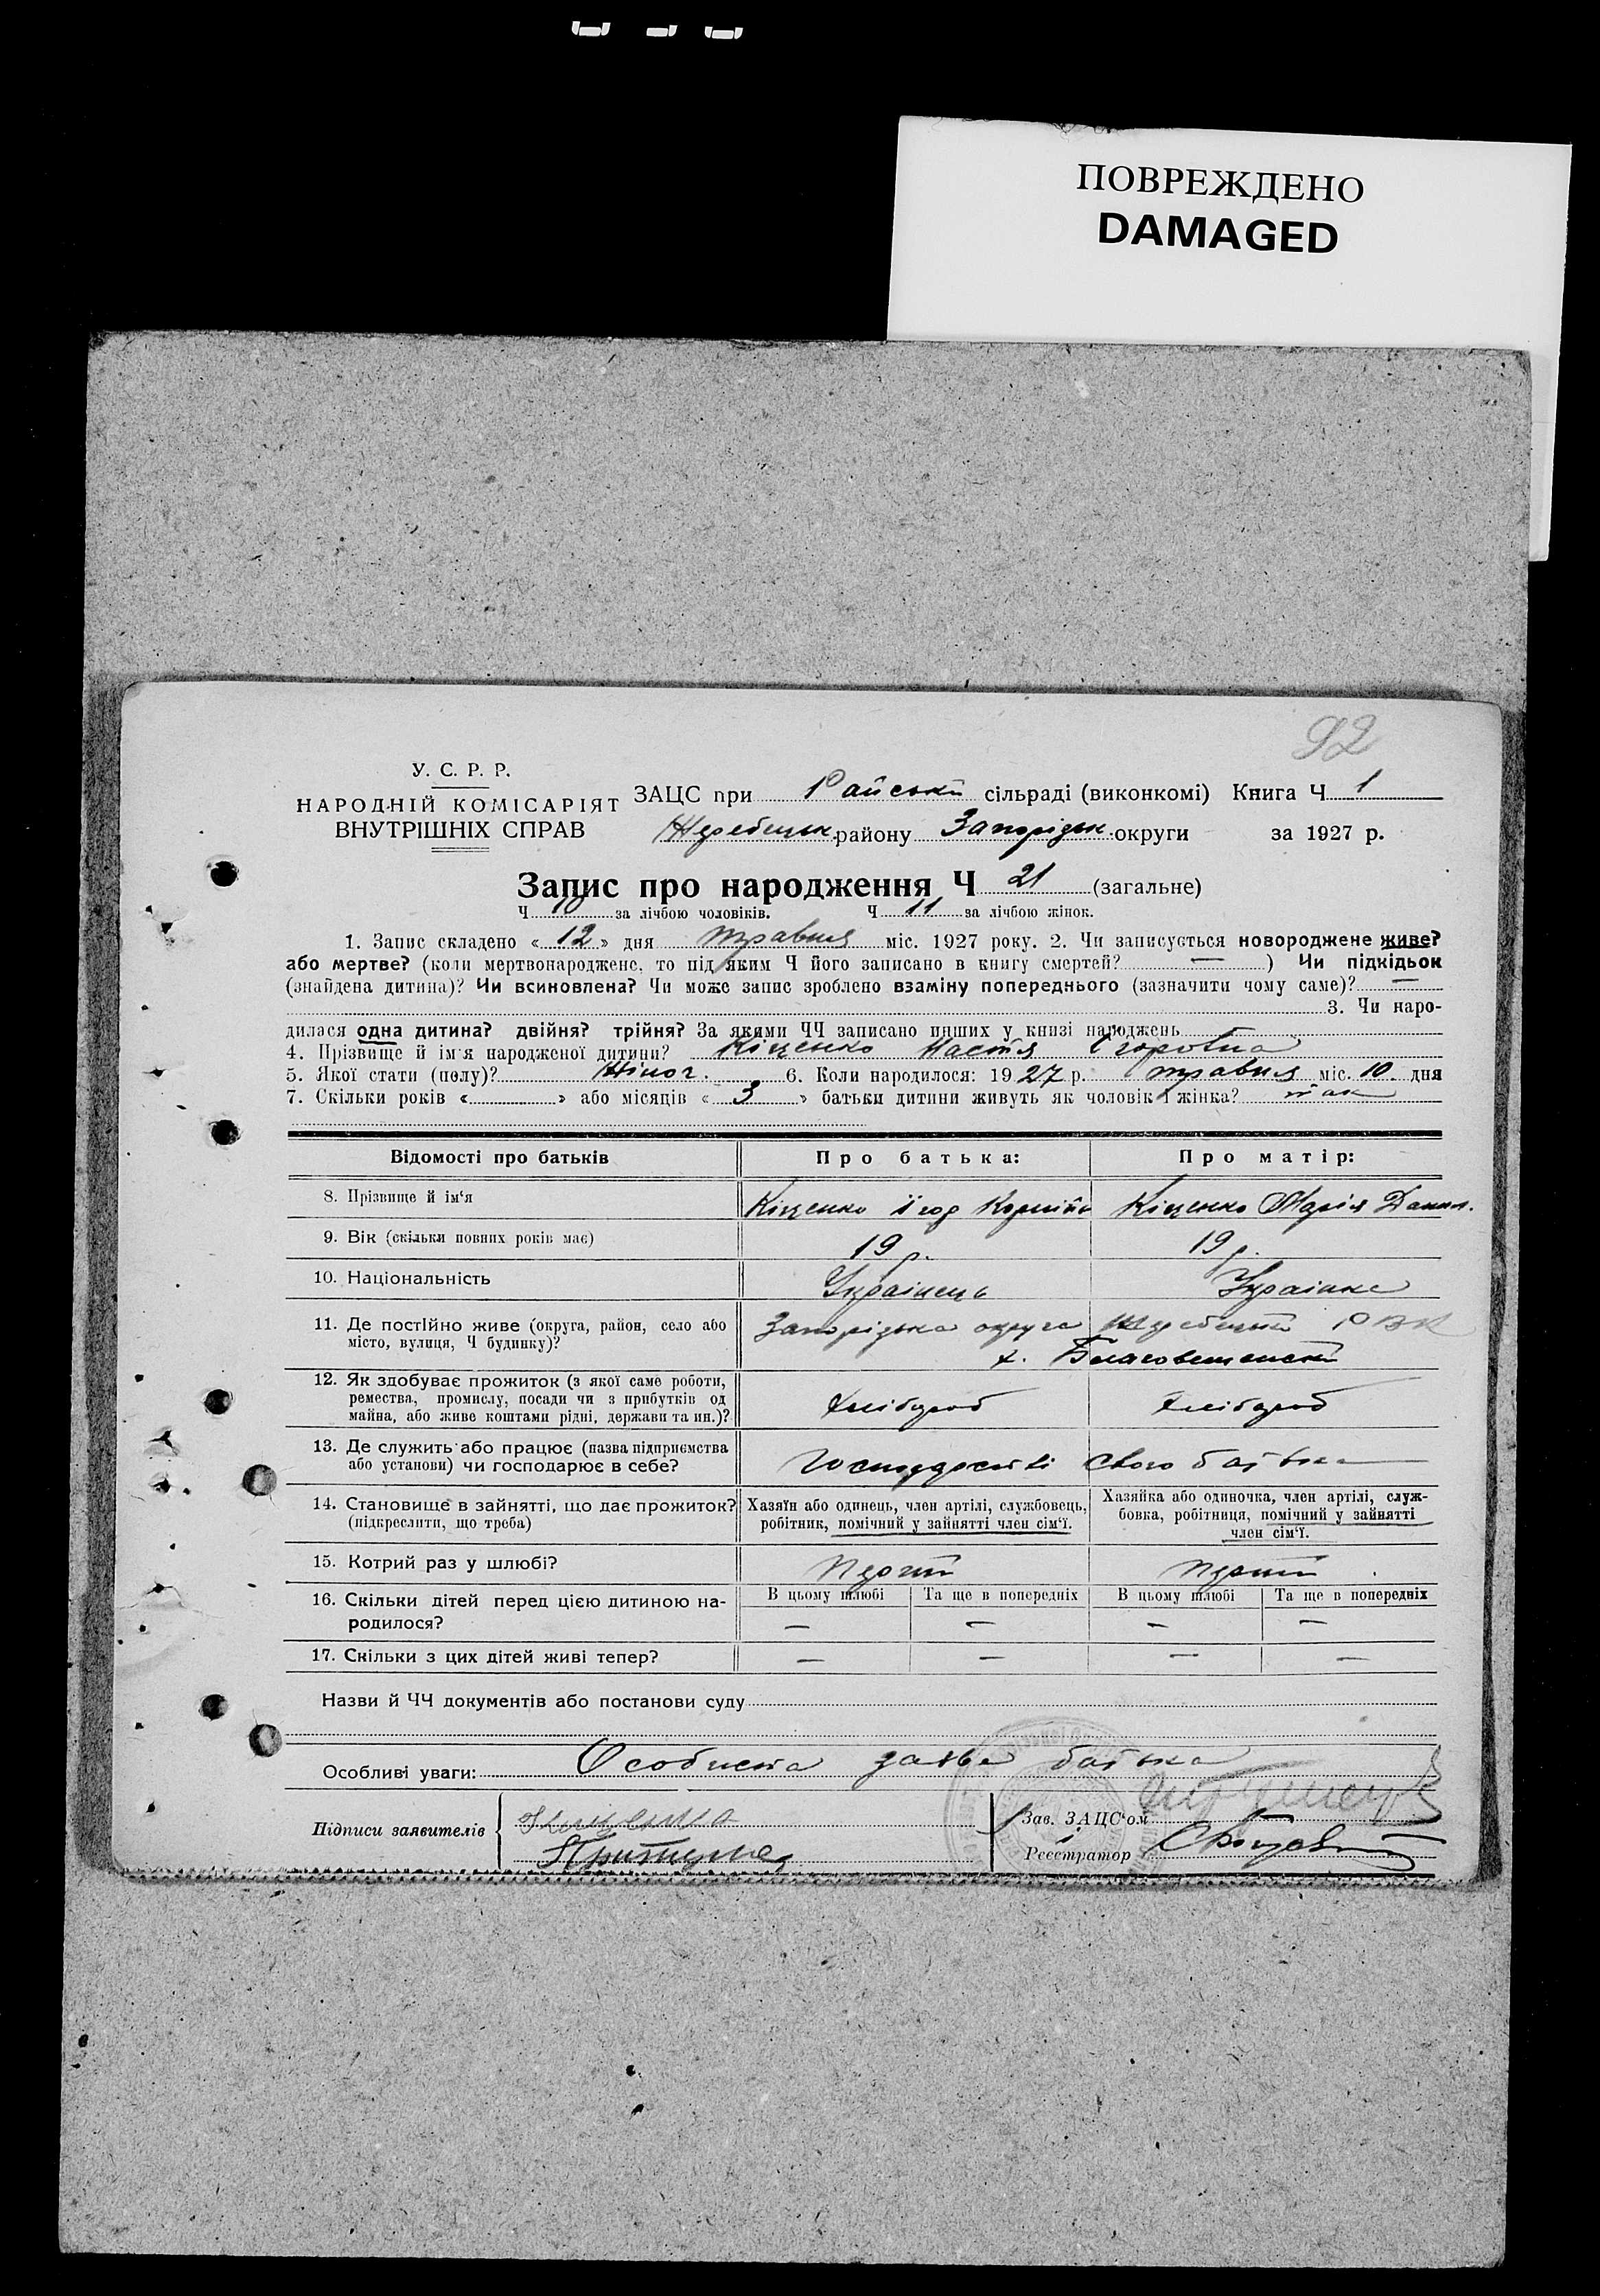 ПОВРЕЖДЕНО
DAMAGED
92
У. С. Р. Р.
НАРОДНІЙ КОМІСАРІЯТ
ВНУТРІШНІХ СПРАВ
ЗАЦС при Райській сільраді (виконкомі) Книга Ч 1
Жеребецьк. району Запорізьк. округи за 1927 р.
Запис про народження Ч 21 (загальне)
Ч 10 за лічбою чоловіків. Ч 11 за лічбою жінок.
1. Запис складено « 12 » дня травня міс. 1927 року. 2. Чи записується новороджене живе?
або мертве? (коли мертвонароджене, то під яким Ч його записано в книгу смертей? — ) Чи підкідьок
(знайдена дитина)? Чи всиновлена? Чи може запис зроблено взаміну попереднього (зазначити чому саме)? —
3. Чи наро-
дилася одна дитина? двійня? трійня? За якими ЧЧ записано инших у книзі народжень
4. Прізвище й ім'я народженої дитини? Кіценко Настя Єгоровна
5. Якої стати (полу)? Жіноч. 6. Коли народилося: 1927 р. травня міс. 10. дня
7. Скільки років « » або місяців « 3 » батьки дитини живуть як чоловік і жінка? так
Відомості про батьків Про батька: Про матір:
8. Прізвище й ім'я Кіценко Єгор Корній Кіценко Марія Данил.
9. Вік (скільки повних років має) 19 р. 19 р.
10. Національність Українець Українка
11. Де постійно живе (округа, район, село або Запорізька округа Жеребецький РВК
місто, вулиця, Ч будинку)? х. Благовещенський
12. Як здобуває прожиток (з якої саме роботи,
ремества, промислу, посади чи з прибутків од
майна, або живе коштами рідні, держави та ин.)? Хлібороб Хлібороб
13. Де служить або працює (назва підприємства
або установи) чи господарює в себе? Господарстві свого батька
14. Становище в зайнятті, що дає прожиток? Хазяїн або одинець, член артілі, службовець, Хазяйка або одиночка, член артілі, служ-
(підкреслити, що треба) робітник, помічний у зайнятті член сім'ї. бовка, робітниця, помічний у зайнятті
член сім'ї.
15. Котрий раз у шлюбі? Перший Перший
16. Скільки дітей перед цією дитиною на- В цьому шлюбі Та ще в попередніх В цьому шлюбі Та ще в попередніх
родилося? — — — —
17. Скільки з цих дітей живі тепер? — — — —
Назви й ЧЧ документів або постанови суду
Особливі уваги: Особиста заява батька
Підписи заявителів Кіценко Зав. ЗАЦС'ом
Притула Реєстратор